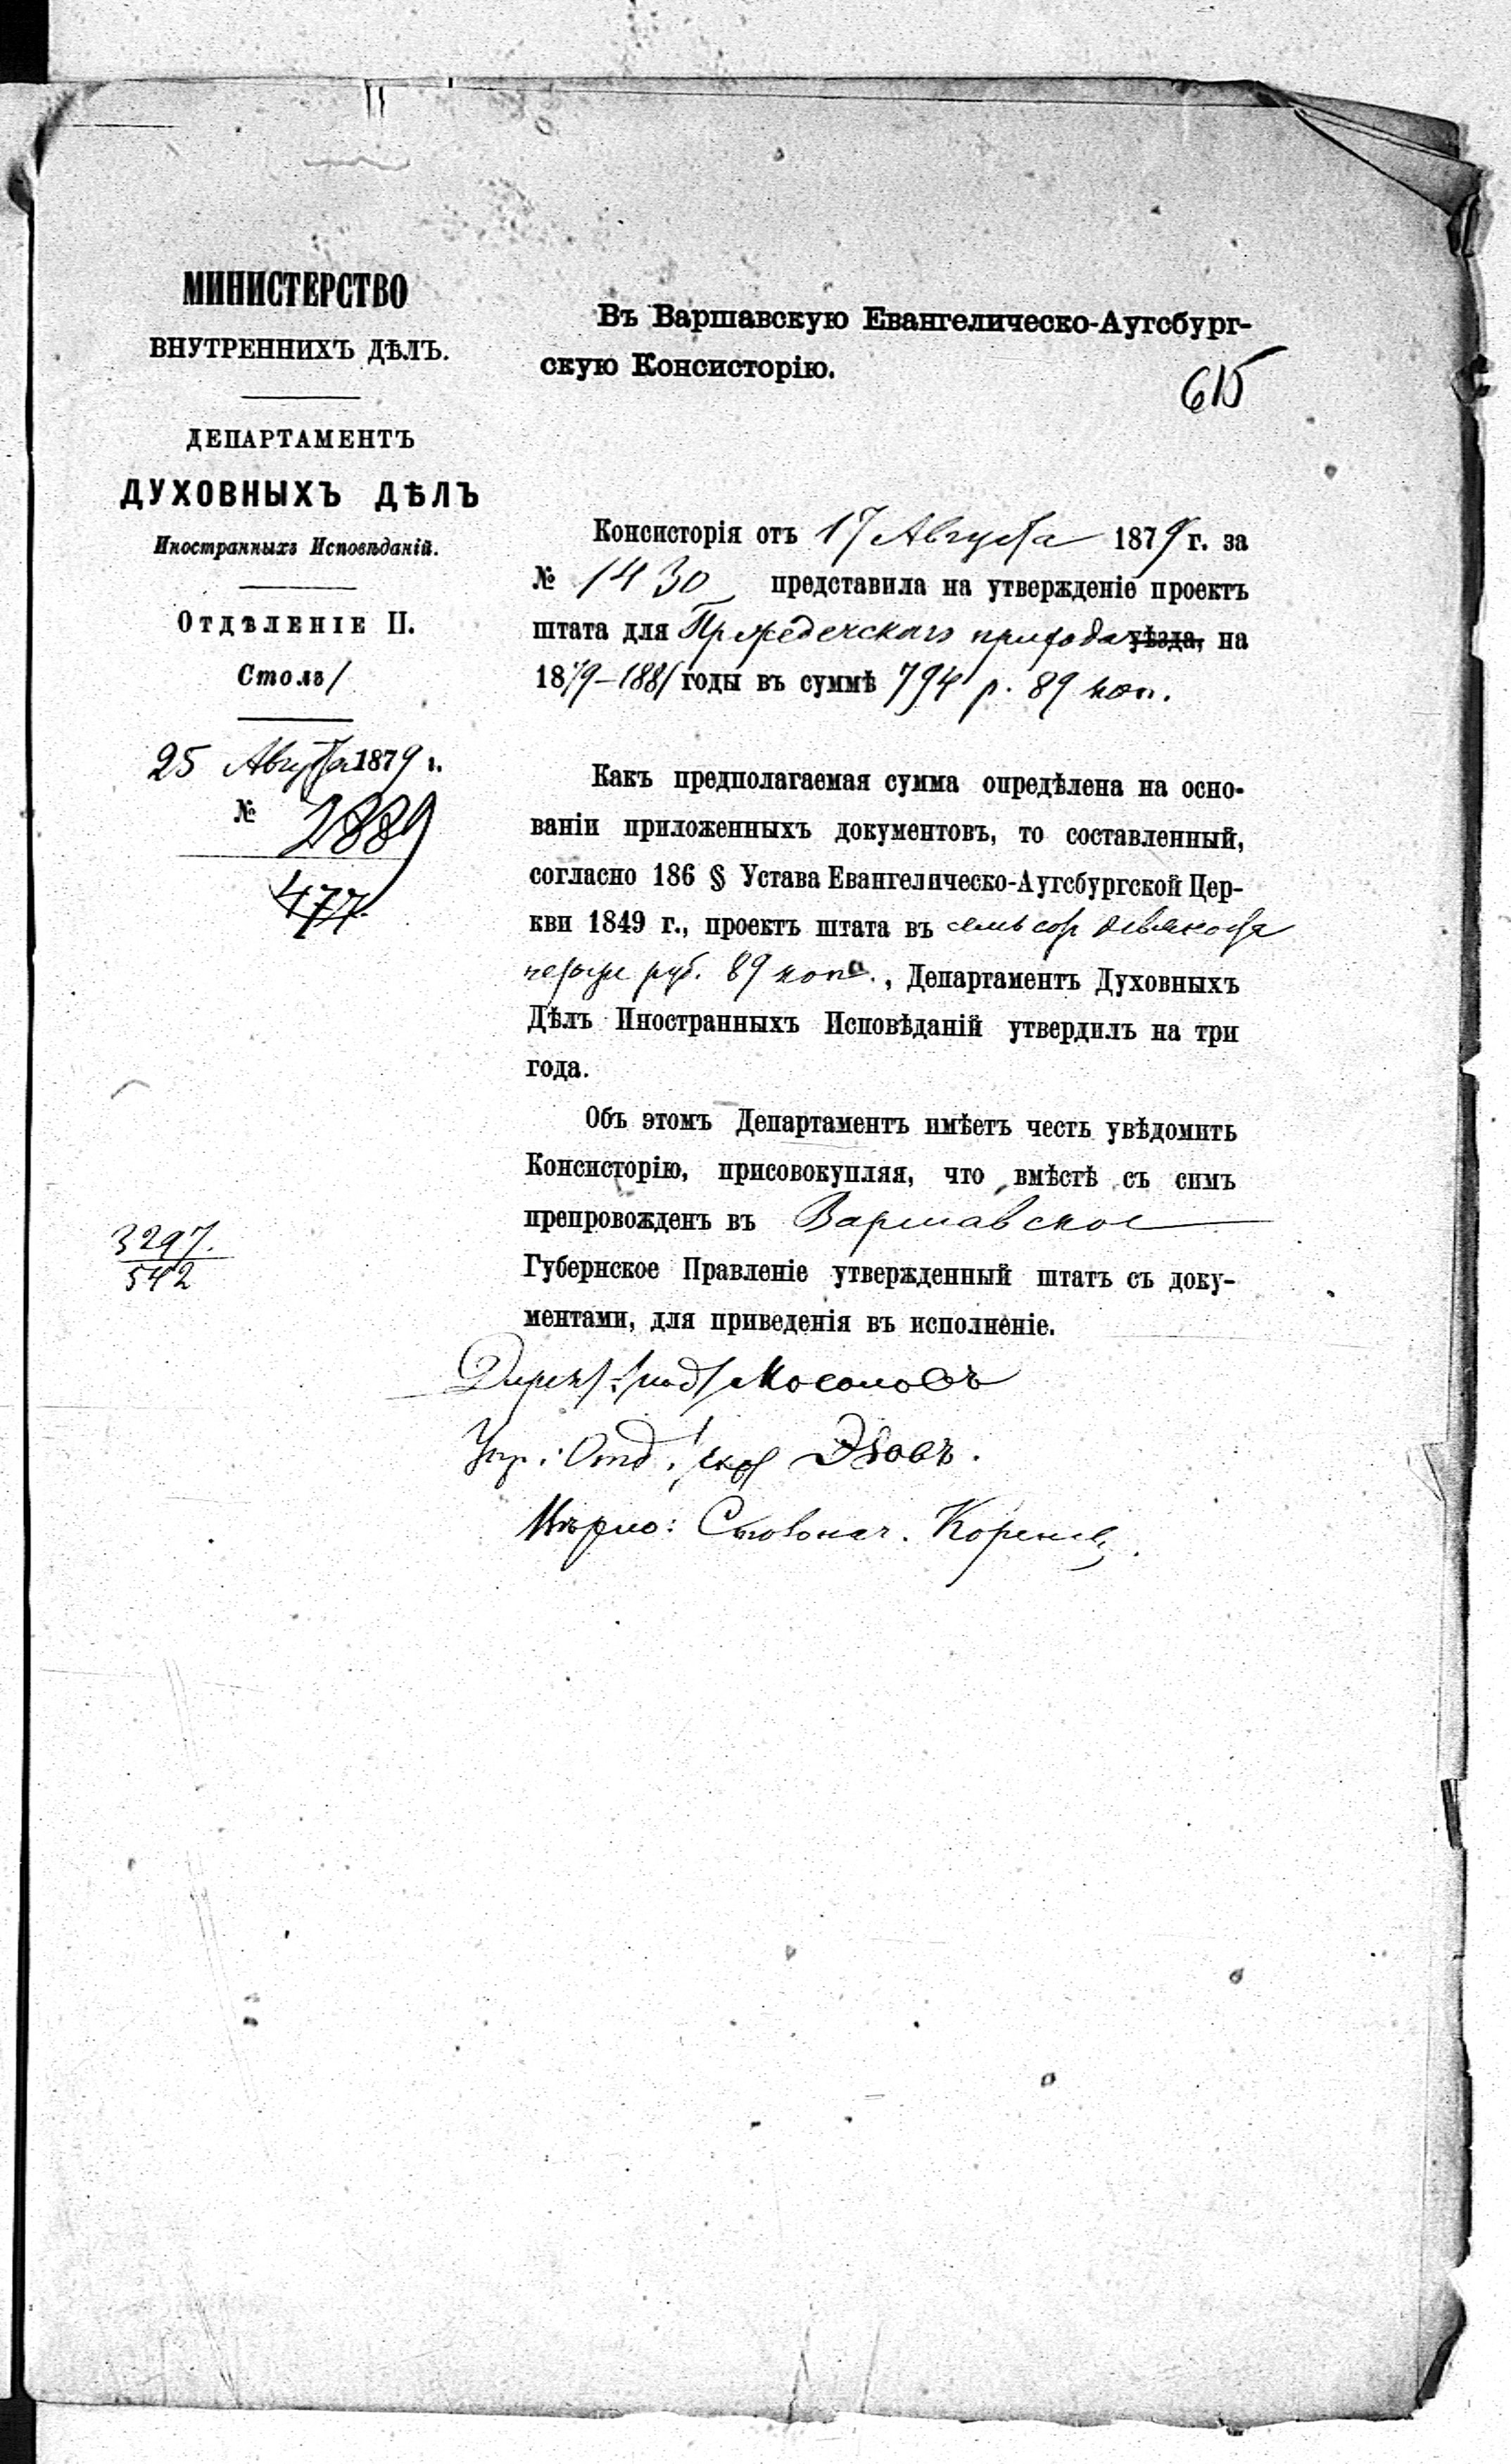 МИНИСТЕРСТВО
ВНУТРЕННИХЪ ДѢЛЪ.
ДЕПАРТАМЕНТЪ
ДУХОВНЫХЪ ДѢЛЪ
Иностранныхъ Исповѣданій.
Отдѣленіе II.
Столъ 1
25 Августа 1879 г.
№ 2889
477.
3297.
542
Въ Варшавскую Евангелическо-Аугсбург-
скую Консисторію.
615
Консисторія отъ 17 Августа 1879 г. за
№ 1430 представила на утвержденіе проектъ
штата для Пржедечскаго прихода уѣзда, на
1879-1881 годы въ суммѣ 794 р. 89 коп.
Какъ предполагаемая сумма опредѣлена на осно-
ваніи приложенныхъ документовъ, то составленный,
согласно 186 § Устава Евангелическо-Аугсбургской Цер-
кви 1849 г., проектъ штата въ семьсотъ девяносто
четыре руб. 89 коп., Департаментъ Духовныхъ
Дѣлъ Иностранныхъ Исповѣданій утвердилъ на три
года.
Объ этомъ Департаментъ имѣетъ честь увѣдомить
Консисторію, присовокупляя, что вмѣстѣ съ симъ
препровожденъ въ Варшавское
Губернское Правленіе утвержденный штатъ съ доку-
ментами, для приведенія въ исполненіе.
Директ: /под/ Мосоловъ
Упр: Отд: /скр/ Эзовъ.
Вѣрно: Столонач.